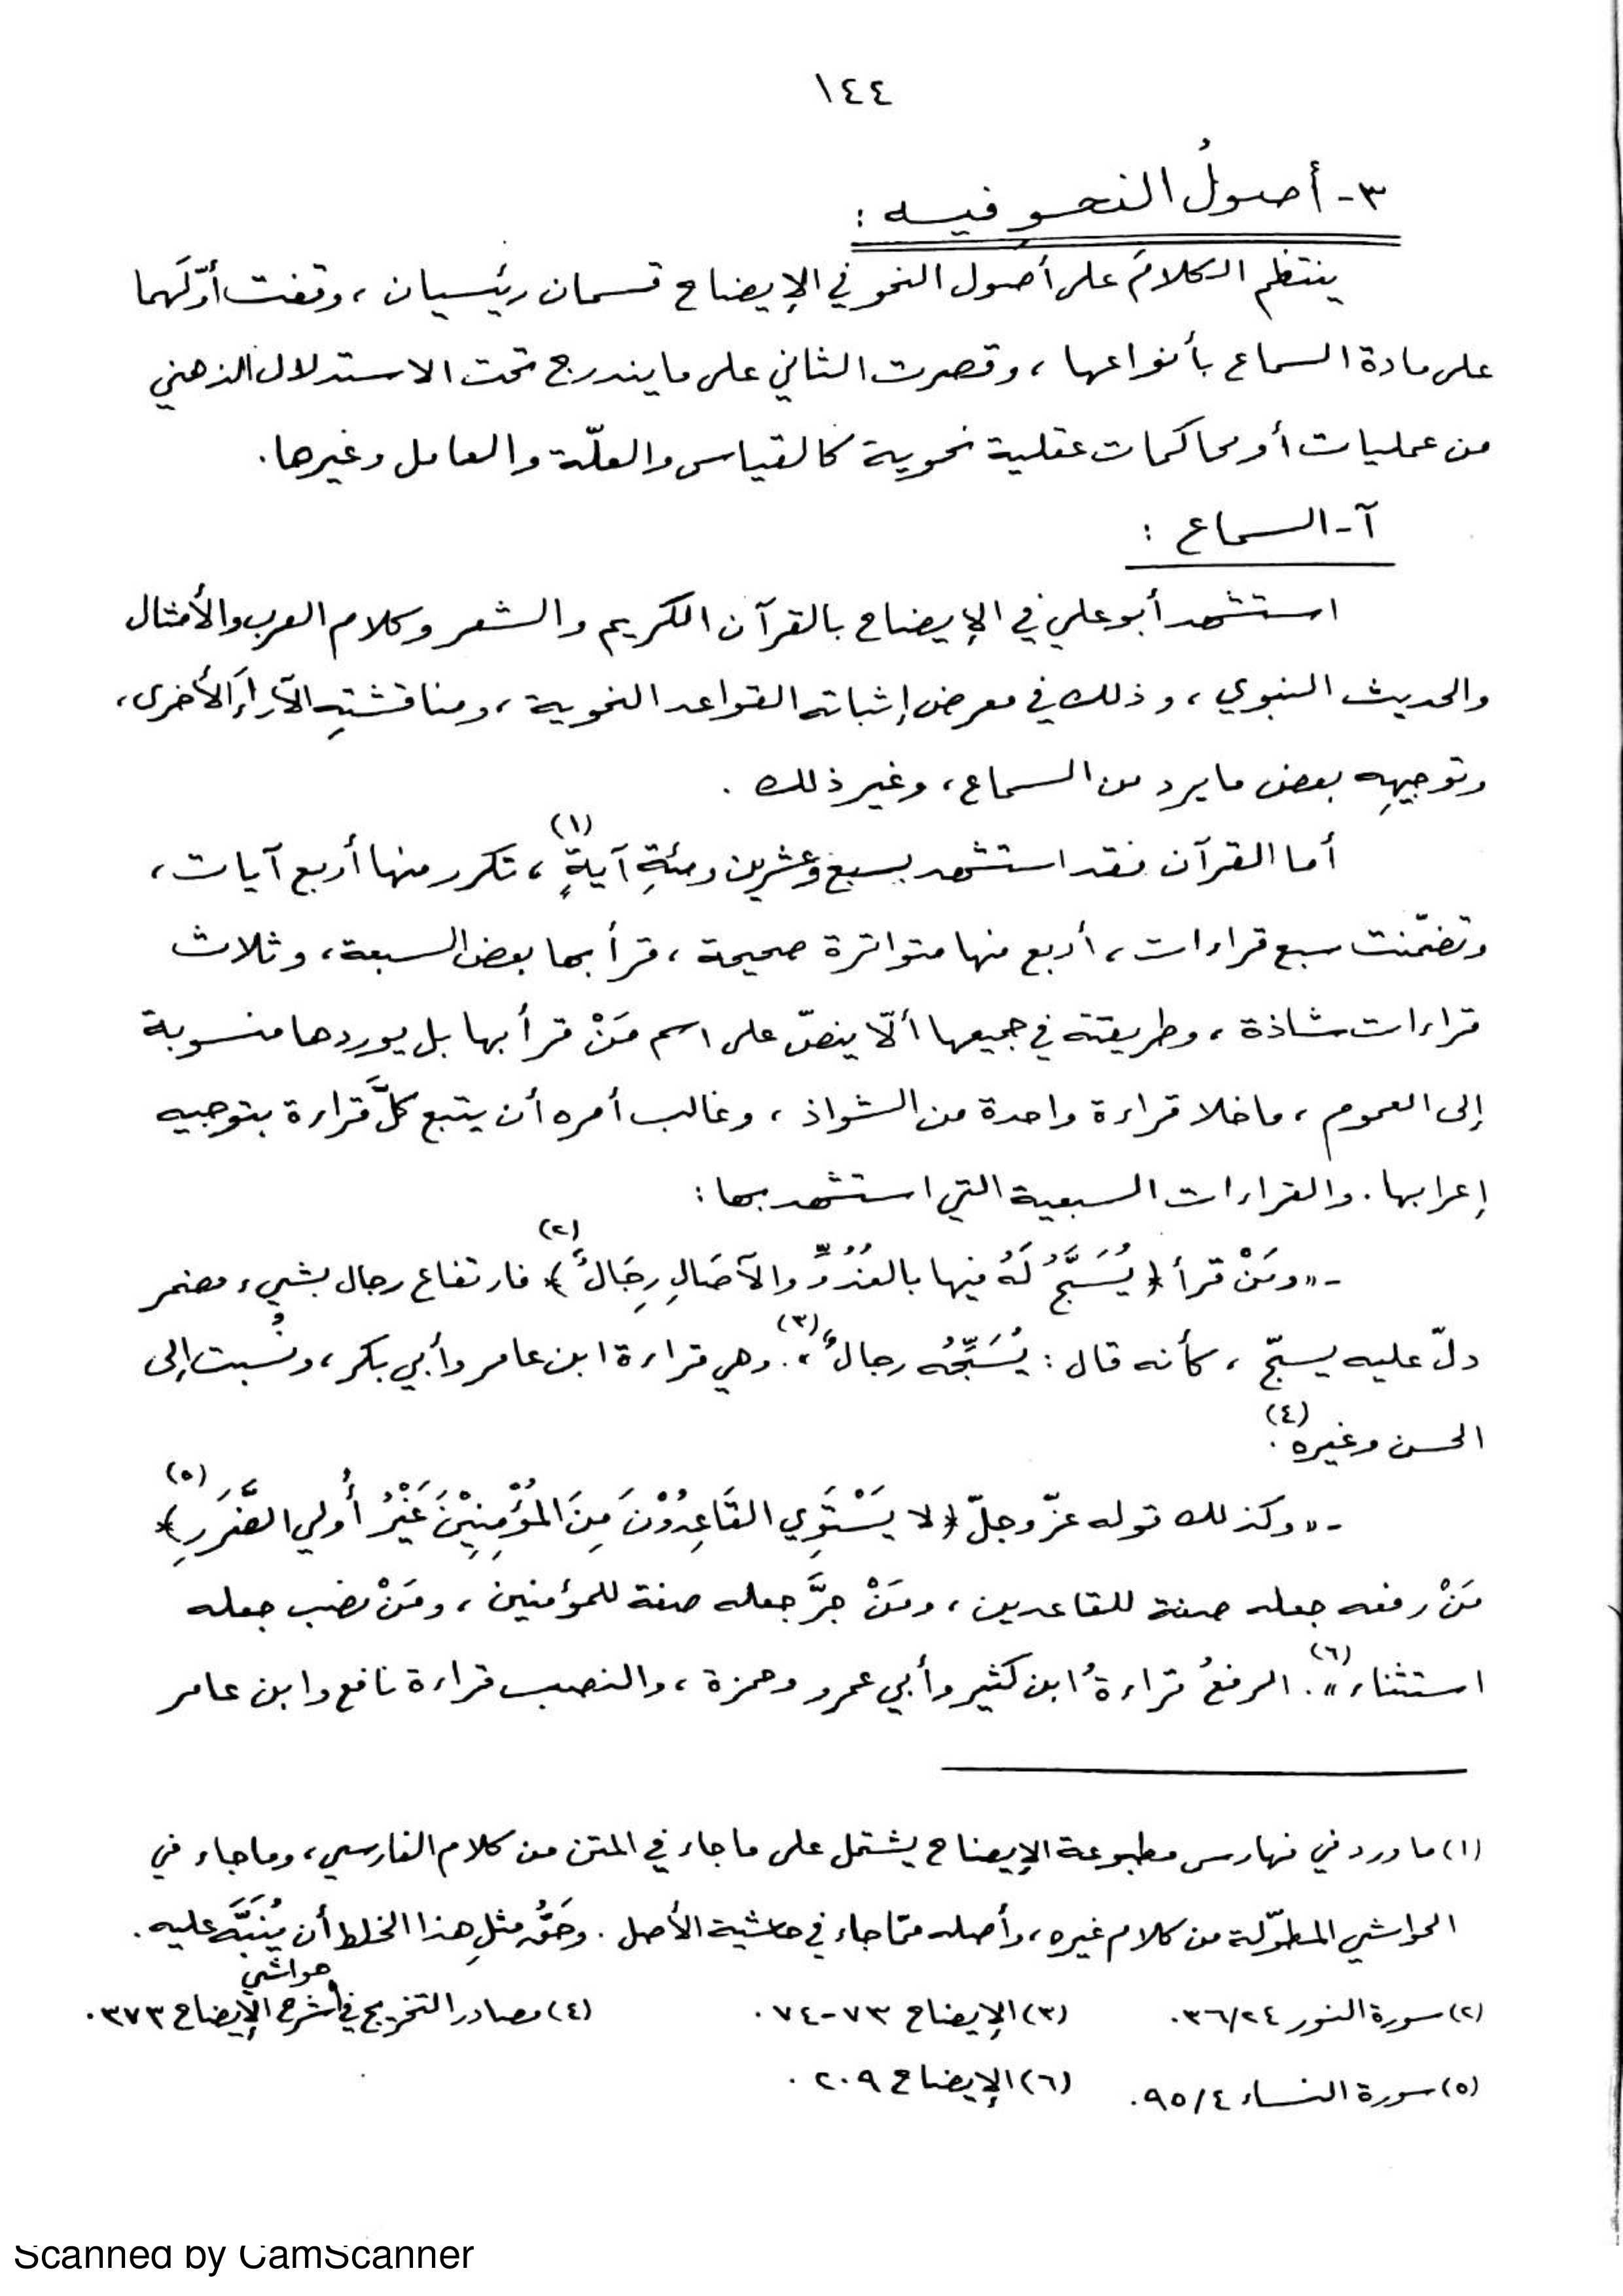 ١٤٤
٣- أصولُ النحو فيه :
ينتظم الكلامَ على أصول النحو في الإيضاح قسمان رئيسيان ، وقفت أوّلَهما
على مادة السماع بأنواعها ، وقصرت الثاني على ما يندرج تحت الاستدلال الذهني
من عمليات أو محاكمات عقلية نحوية كالقياس والعلّة والعامل وغيرها .
آ- السماع :
استشهد أبو علي في الإيضاح بالقرآن الكريم والشعر وكلام العرب والأمثال
والحديث النبوي ، وذلك في معرض إثباته القواعد النحوية ، ومناقشتِه الآراءَ الأخرى ،
وتوجيهِه بعض ما يرد من السماع ، وغير ذلك .
أما القرآن فقد استشهد بسبع وعشرين ومئةِ آيةٍ (١) ، تكرر منها أربع آيات ،
وتضمّنت سبع قراءات ، أربع منها متواترة صحيحة ، قرأ بها بعض السبعة ، وثلاث
قراءات شاذة ، وطريقته في جميعها ألّا ينصّ على اسم مَنْ قرأ بها بل يوردها منسوبة
إلى العموم ، ما خلا قراءة واحدة من الشواذ ، وغالب أمره أن يتبع كلَّ قراءة بتوجيه
إعرابها . والقراءات السبعية التي استشهد بها :
- « ومَنْ قرأ ﴿ يُسَبَّحُ لَهُ فيها بالغُدُوِّ والآصَالِ رِجَالٌ ﴾ (٢) فارتفاع رجال بشيء مضمر
دلّ عليه يسبّح ، كأنه قال : يُسَبِّحُه رجالٌ » (٣) . وهي قراءة ابن عامر وأبي بكر ، ونُسبت إلى
الحسن وغيره (٤) .
- « وكذلك قوله عزّ وجلّ ﴿ لا يَسْتَوِي القَاعِدُوْنَ مِنَ المُؤْمِنِيْنَ غَيْرُ أُولي الضَّرَرِ ﴾ (٥)
مَنْ رفعه جعله صفة للقاعدين ، ومَنْ جرَّ جعله صفة للمؤمنين ، ومَنْ نصب جعله
استثناء » (٦) . الرفعُ قراءةُ ابن كثير وأبي عمرو وحمزة ، والنصب قراءة نافع وابن عامر
(١) ما ورد في فهارس مطبوعة الإيضاح يشتمل على ما جاء في المتن من كلام الفارسي ، وما جاء في
الحواشي المطوّلة من كلام غيره ، وأصله ممّا جاء في حاشية الأصل . وحَقُّ مثلِ هذا الخلط أن يُنَبَّهَ عليه .
(٢) سورة النور ٢٤/٣٦ . (٣) الإيضاح ٧٣-٧٤ . (٤) مصادر التخريج في حواشي شرح الإيضاح ٣٧٣ .
(٥) سورة النساء ٤/٩٥ . (٦) الإيضاح ٢٠٩ .
Scanned by CamScanner